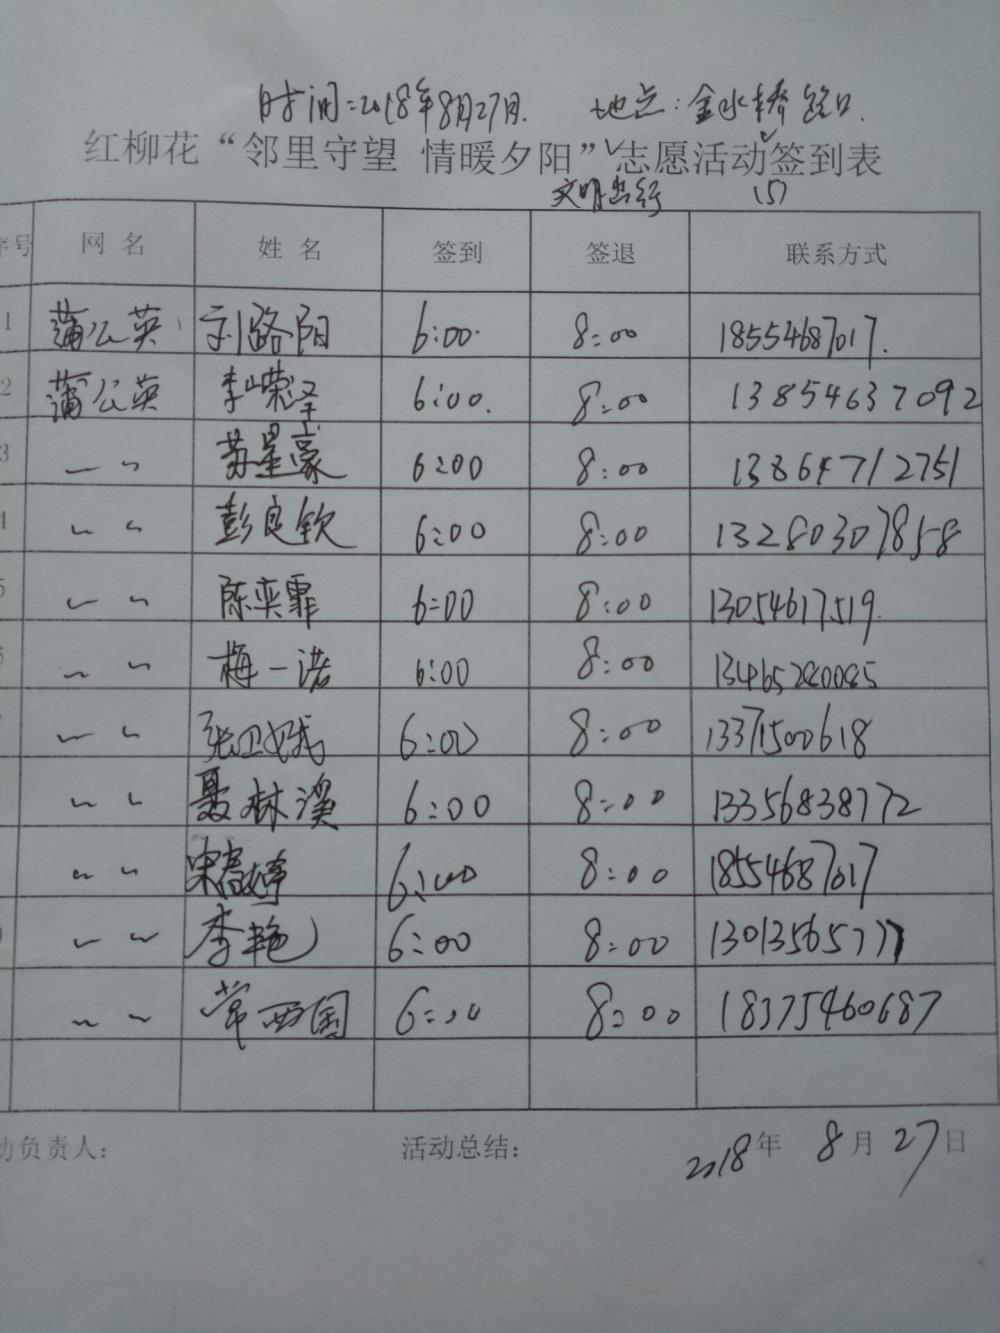 时间:2018年8月27日. 地点:金水桥路口.
红柳花“邻里守望 情暖夕阳”志愿活动签到表
文明出行 (5)
序号 网 名 姓 名 签到 签退 联系方式
1 蒲公英 刘路阳 6:00. 8:00 18554687017.
2 蒲公英 李嵘泽 6:00. 8:00 13854637092
3 〃 〃 苏星豪 6:00 8:00 13864712751
4 〃 〃 彭良钦 6:00 8:00 13280307858
5 〃 〃 陈奕霏 6:00 8:00 13054617519.
6 〃 〃 梅一诺 6:00 8:00 13465280085
〃 〃 张卫娥 6:00 8:00 13371500618
〃 〃 聂林溪 6:00 8:00 13356838772
〃 〃 宋高婷 6:00 8:00 18554687017
〃 〃 李艳 6:00 8:00 13013565777
〃 〃 常西国 6:00 8:00 18375460687
动负责人: 活动总结: 2018年 8月27日